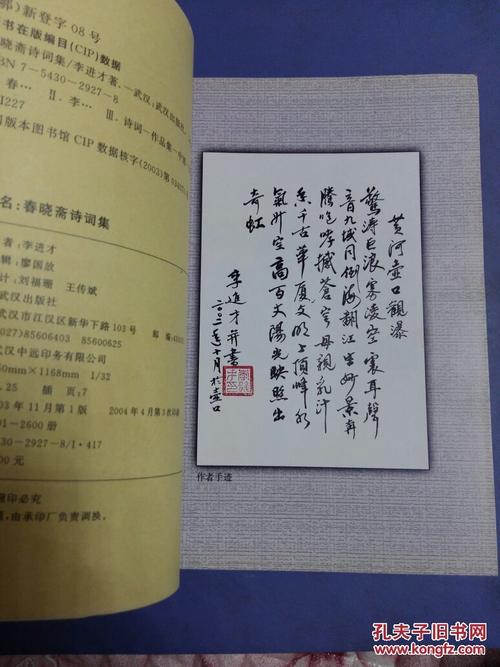 鄂)新登字08号
书在版编目(CIP)数据
晓斋诗词集/李进才著.—武汉:武汉出版社,
BN 7-5430-2927-8
春… Ⅱ.李… Ⅲ.诗词—作品集—中国
I227
国版本图书馆CIP数据核字(2003)第
名:春晓斋诗词集
者:李进才
辑:廖国放
计:刘福珊 王传斌
武汉出版社
武汉市江汉区新华下路103号
(027)85606403 85600625
武汉中远印务有限公司
850mm×1168mm 1/32
.25 插页:7
03年11月第1版 2004年4月第3次印刷
01-2600册
-2927-8/I·417
00元
翻印必究
,由承印厂负责调换。
黄河壶口观瀑
惊涛巨浪雾凌空震耳声
音九域同倒海翻江生妙景奔
腾咆哮撼苍穹母亲乳汁
千古华厦文明上顶峰水
气升空高百丈阳光映照出
奇虹
李进才并书
二〇〇二年十月於壶口
作者手迹
孔夫子旧书网
www.kongfz.com